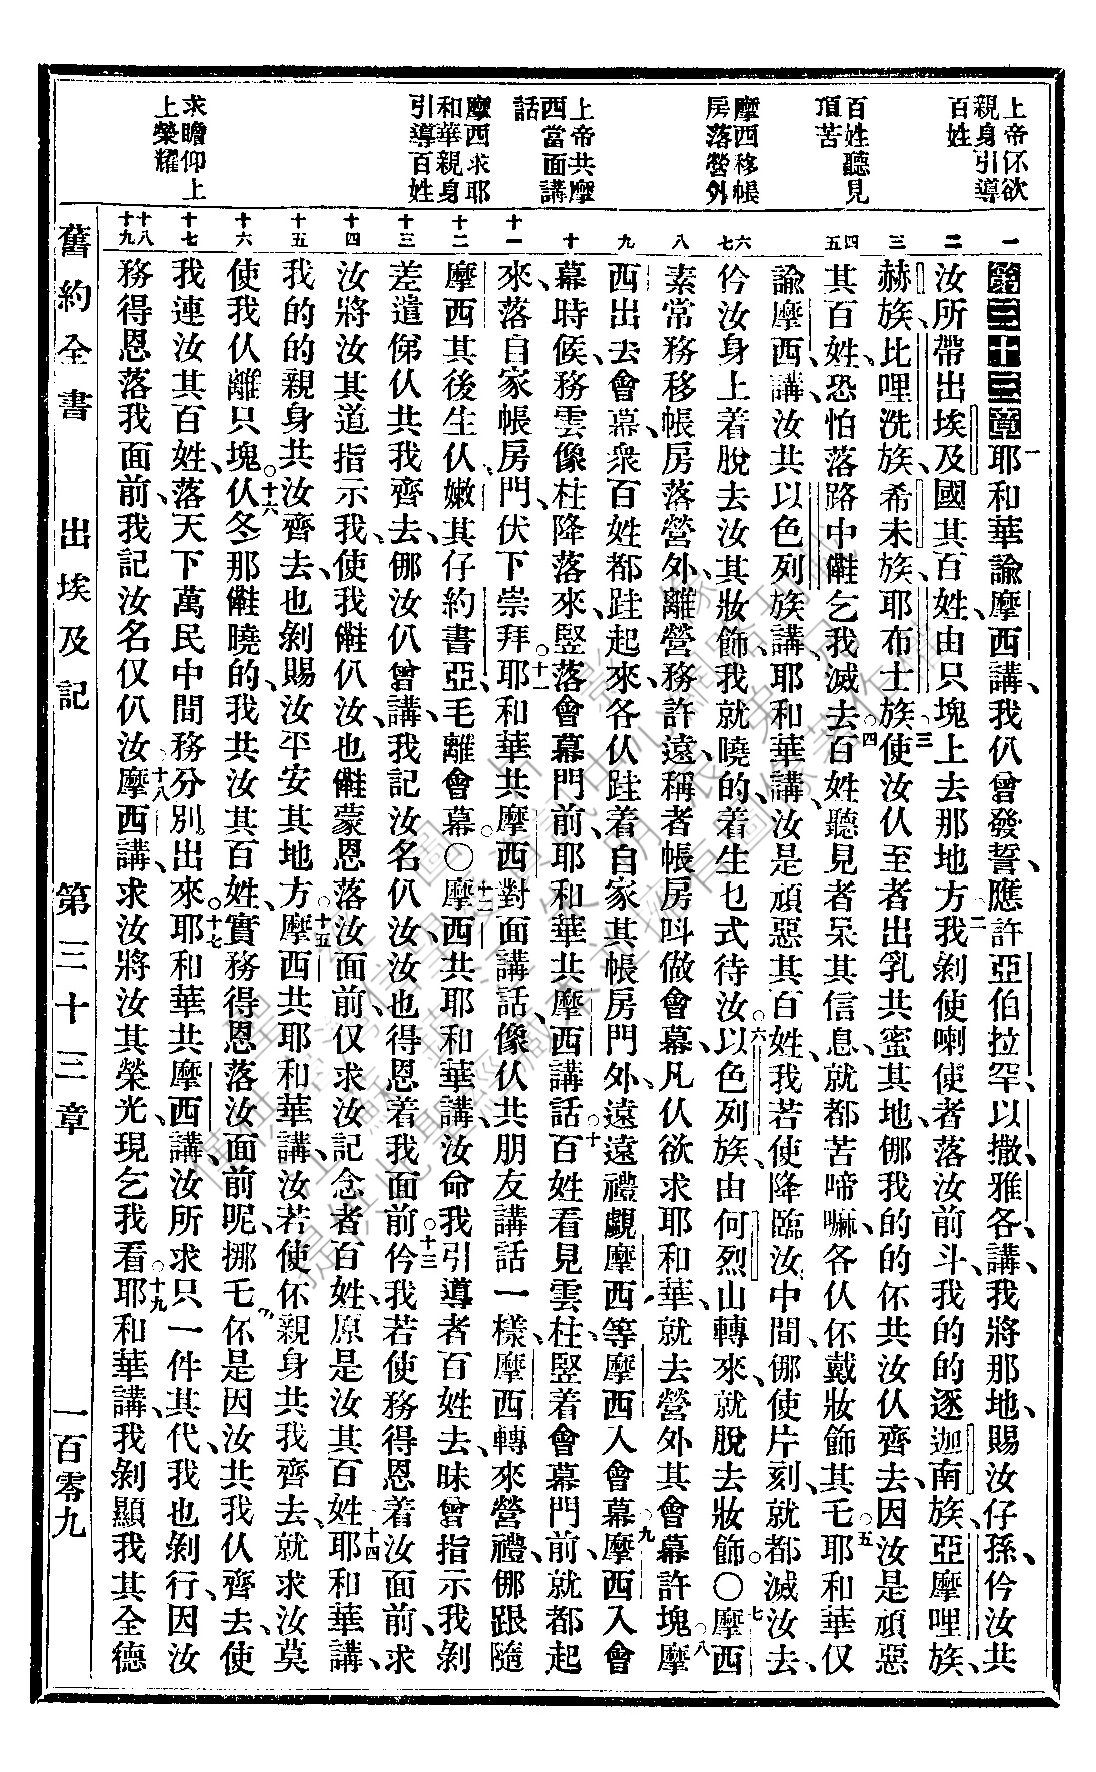 上帝伓欲
親身引導
百姓
百姓聽見
頂苦
摩西移帳
房落營外
上帝共摩
西當面講
話
摩西求耶
和華親身
引導百姓
求瞻仰上
上榮耀
一
二
三
四
五
六
七
八
九
十
十一
十二
十三
十四
十五
十六
十七
十八
十九
第三十三章 一耶和華諭摩西講、我仈曾發誓、應許亞伯拉罕、以撒、雅各講、我將那地、賜汝仔孫、伱汝共
汝所帶出埃及國其百姓、由只塊上去那地方、二我剝使喇使者落汝前斗、我的的逐迦南族、亞摩哩族、
赫族、比哩洗族、希未族、耶布士族、三使汝仈至者出乳共蜜其地、㑚我的的伓共汝仈齊去、因汝是頑惡
其百姓、恐怕落路中㒉乞我滅去。四百姓聽見者呆其信息、就都苦啼嘛、各仈伓戴妝飾其乇。五耶和華仅
諭摩西講、汝共以色列族講、耶和華講、汝是頑惡其百姓、我若使降臨汝中間、㑚使片刻、就都滅汝去、
伱汝身上着脫去汝其妝飾、我就曉的着生乜式待汝。六以色列族、由何烈山轉來、就脫去妝飾。〇七摩西
素常務移帳房落營外、離營務許遠、稱者帳房叫做會幕、凡仈欲求耶和華、就去營外其會幕許塊。八摩
西出去會幕、衆百姓都跬起來、各仈跬着自家其帳房門外、遠遠禮覷摩西、等摩西入會幕。九摩西入會
幕時候、務雲像柱降落來、竪落會幕門前、耶和華共摩西講話。十百姓看見雲柱、竪着會幕門前、就都起
來、落自家帳房門、伏下崇拜。十一耶和華共摩西對面講話、像仈共朋友講話一樣、摩西轉來營禮、㑚跟隨
摩西其後生仈、嫩其仔約書亞、乇離會幕。〇十二摩西共耶和華講、汝命我引導者百姓去、昧曾指示我剝
差遣㑚仈共我齊去、㑚汝仈曾講、我記汝名仈汝、汝也得恩着我面前。十三伱我若使務得恩着汝面前、求
汝將汝其道指示我、使我㒉仈汝、也㒉蒙恩落汝面前、仅求汝記念者百姓、原是汝其百姓。十四耶和華講、
我的的親身共汝齊去、也剝賜汝平安其地方。十五摩西共耶和華講、汝若使伓親身共我齊去、就求汝莫
使我仈離只塊。十六仈冬那㒉曉的、我共汝其百姓、實務得恩落汝面前呢、挪乇伓是因汝共我仈齊去、使
我連汝其百姓、落天下萬民中間務分別出來。十七耶和華共摩西講、汝所求只一件其代、我也剝行、因汝
務得恩落我面前、我記汝名仅仈汝。十八摩西講、求汝將汝其榮光、現乞我看。十九耶和華講、我剝顯我其全德
舊約全書 出埃及記 第三十三章 一百零九